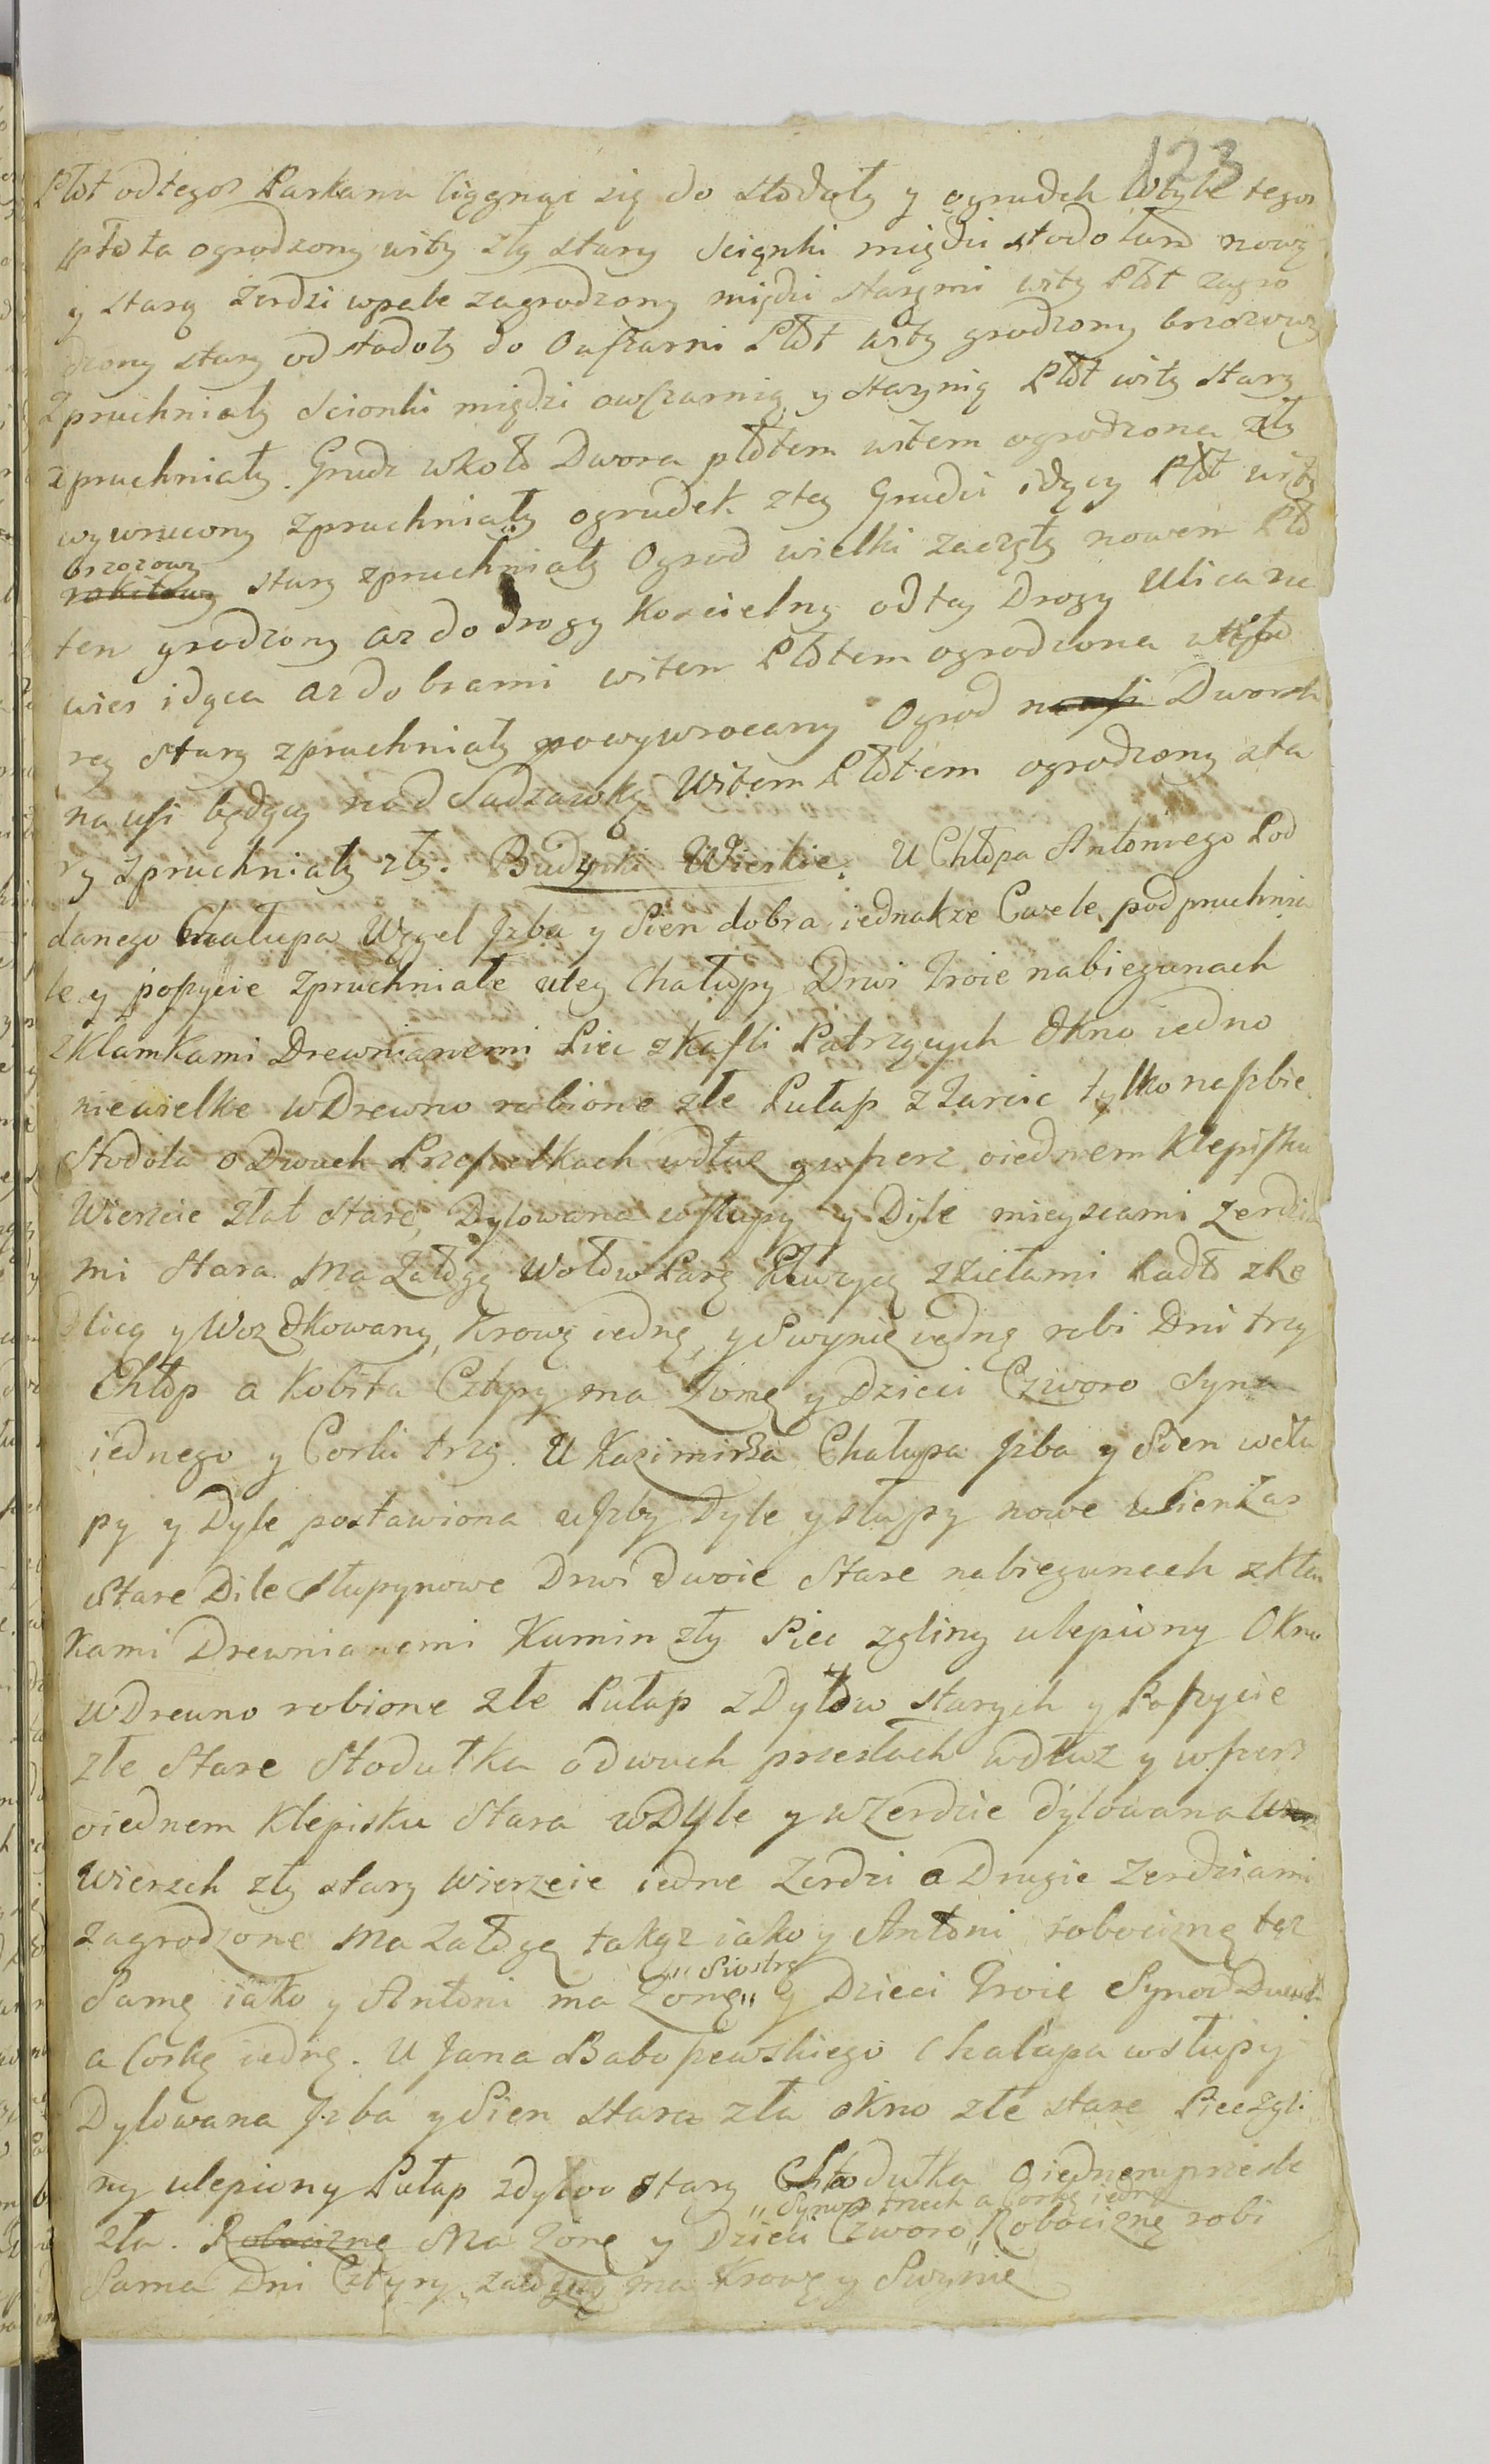 123
Płot odtegoz Parkana ciągnąc się do stodoły y ogrudek wtyle tegoz
płota ogrodzony wity zły stary Sciąnki między stodołami nową
y starą żerdzi wpale zagrodzony między starymi wity Płot zagro
dzony stary od stodoły do Owszarni Płot wity grodzony brzozowy
Zpruchniały Scionki między owszarnią y staynią Płot wity stary
zpruchniały. Grudz wkoło Dwora płotem witem ogrodzona zły
wywrucony zpruchniały ogrudek z tey Grudzi idący Płot wity
brzozowy
rokitowy stary zpruchniały Ogrod wielki zaczęty nowem Pło
tem grodzony az do drogy Koscielny od tey Drogy Ulica na
wies idąca az do brami witem Płotem ogrodzona
rey stary zpruchniały powywrocany Ogrod na wsi Dworsk
na wsi będący nad Sadzawką Witem Płotem ogrodzony sta
ry zpruchniały zły. Budynki Wieskie. U Chłopa Antoniego Pod
danego Chałupa Węgel Izba y Sien dobra iednakze Cwele podpruchnia
łe y poszycie Zpruchniałe u tey Chałupy Drwi Troie nabiegunach
z Klamkami Drewnianemi Piec z Kafli Patrzących Okno iedno
niewielke w Drewno robione złe Pułap z Tarcic tylko na Izbie
Stodoła o Dwuch Przesełkach wdłuz y wszerz oiednem Klepisku
Wierzcie złe stare, Dylowana w słupy y Dyle mieyscami Zerdzia
mi stara. Ma Załogę Wołow Parę Pługyę z Kiełami Radło zRe
dlicą y Woz Okowany, Krowę iednę, y Swynię iednę robi Dni trzy
Chłop a Kobita Cztyry ma Zonę y Dzieci Czworo Syna
iednego y Corki trzy. U Kazimirza Chałupa Izba y Sien w słu
py y Dyle postawiona u Izby Dyle y słupy nowe u Sieni zas
Stare Dile słupy nowe Drwi Dwoie Stare nabiegunach z Klam
Kami Drewnianemi Kumin zły Piec zgliny ulepiony Okno
w Drewno robione złe Pułap z Dylow starych y Poszycie
złe Stare Stodułka o dwuch przesłach wdłuz y wszerz
oiednem Klepisku Stara w Dyle y w Zerdzie dylowana
Wierzch zły stary Wierzeie iedne Zerdzi a Drugie Zerdziami
zagrodzone Ma Załogę takąz iako y Antoni robociznę tęz
Samę iako y Antoni ma Zonę „Siostrę„ y Dzieci Troie Synow Dwuch
a Corkę iednę. U Jana Baboszewskiego Chałupa w słupy
Dylowana Izba y Sien stara zła okno złe stare Piec zgli
ny ulepiony Pułap z dylow stary Stodułka o iednem przesle
„Synow trzech a Corkę iednę
zła. Robociznę Ma Zonę y Dzieci Czworo„ Robociznę robi
Sama Dni Cztyry załogy ma Krowę y Swynię